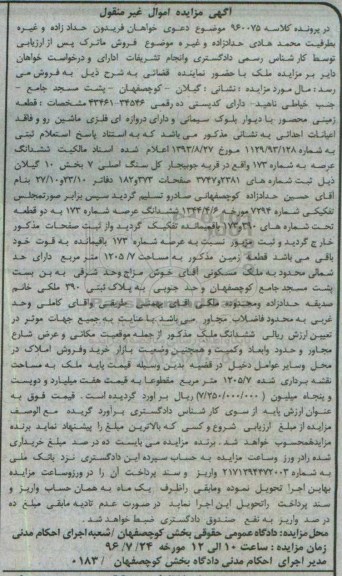 آگهی مزایده اموال غیر منقول
در پرونده کلاسه ۹۶۰۰۷۵ موضوع دعوی خواهان فریدون حدادزاده و غیره
بطرفیت محمد هادی حدادزاده و غیره موضوع فروش ماترک پس از ارزیابی
توسط کارشناس رسمی دادگستری وانجام تشریفات اداری و درخواست خواهان
دایر بر مزایده ملک با حضور نماینده قضائی به شرح ذیل به فروش می
رسد : مال مورد مزایده : نشانی : گیلان - کوچصفهان - پشت مسجد جامع -
جنب خیاطی ناهید- دارای کدپستی ده رقمی ۳۴۵۴۶-۴۳۴۶۱ مشخصات : قطعه
زمینی محصور با دیوار بلوک سیمانی و دارای دروازه ای فلزی ماشین رو و فاقد
اعیانات احداثی به نشانی مذکور می باشد که به استناد پاسخ استعلام ثبتی
به شماره ۱۱۲۹/۹۳/۱۲۸ مورخ ۱۳۹۳/۸/۲۷ اعلام شده اسناد مالکیت ششدانگ
عرصه به شماره ۱۷۳ واقع در قریه جوبیجار کل سنگ اصلی ۷ بخش ۱۰ گیلان
ذیل ثبت شماره های ۲۳۸۱و۳۷۴۷ صفحات ۳۷۳و۱۸۲ دفاتر ۲۳/۱۰و۲۷/۱۰ بنام
آقای حسین حدادزاده کوچصفهانی صادر و تسلیم گردید سپس برابر صورتمجلس
تفکیکی شماره ۷۲۹۴ مورخه ۱۳۴۴/۴/۶ ششدانگ عرصه شماره ۱۷۳ به دو قطعه
تحت شماره های ۳۹۰و۱۷۳ باقیمانده تفکیک گردید واز ثبت صفحات مذکور
خارج گردید و ثبت مزبور نسبت به عرصه شماره ۱۷۳ باقیمانده به قوت خود
باقی می باشد قطعه زمین مذکور به مساحت ۱۲۰۵/۷ متر مربع دارای حد
شمالی محدود به ملک مسکونی آقای خوش مزاج وحد شرقی به بن بست
پشت مسجد جامع کوچصفهان و حد جنوبی به پلاک ثبتی ۳۹۰ ملکی خانم
صدیقه حدادزاده ومحدوده ملکی آقای بهمنی طریقی واقای کاملی وحد
غربی به محدود فاضلاب مجاور می باشد با عنایت به جمیع جهات موثر در
تعیین ارزش ریالی ششدانگ ملک مذکور از جمله موقعیت مکانی و عرض شارع
مجاور و حدود وابعاد وکمیت و همچنین وضعیت بازار خرید وفروش املاک در
محل وسایر عوامل دخیل در قضیه بدین وسیله قیمت پایه ملک به مساحت
نقشه برداری شده ۱۲۰۵/۷ متر مربع مقطوعا به قیمت هفت میلیارد و دویست
و پنجاه میلیون (۷/۲۵۰/۰۰۰/۰۰۰) ریال برآورد گردیده است . قیمت فوق به
عنوان ارزش پایه از سوی کارشناس دادگستری برآورد گردیده مع الوصف
مزایده از مبلغ ارزیابی شروع و کسی که بالاترین مبلغ را پیشنهاد نماید برنده
مزایده محسوب خواهد شد . برنده مزایده می بایست ده در صد مبلغ خریداری
شده رادر روز وساعت مزایده به حساب سپرده این دادگستری نزد بانک ملی
به شماره ۲۱۷۱۲۹۴۴۷۲۰۰۳ واریز و سند پرداخت آن را در روز وساعت مزایده
بهاین اجرا تحویل نموده ومابقی راظرف یک ماه به همان حساب واریز و
سند پرداخت راتحویل این اجرا نماید در صورت عدم تادیه مابقی مبلغ ده
در صد واریز به نفع صندوق دادگستری ضبط خواهد شد .
محل مزایده: دادگاه عمومی حقوقی بخش کوچصفهان /شعبه اجرای احکام مدنی
زمان مزایده : ساعت ۱۰ الی ۱۲ مورخه ۹۶/۷/۲۴
مدیر اجرای احکام مدنی دادگاه بخش کوچصفهان / ۰۱۸۳